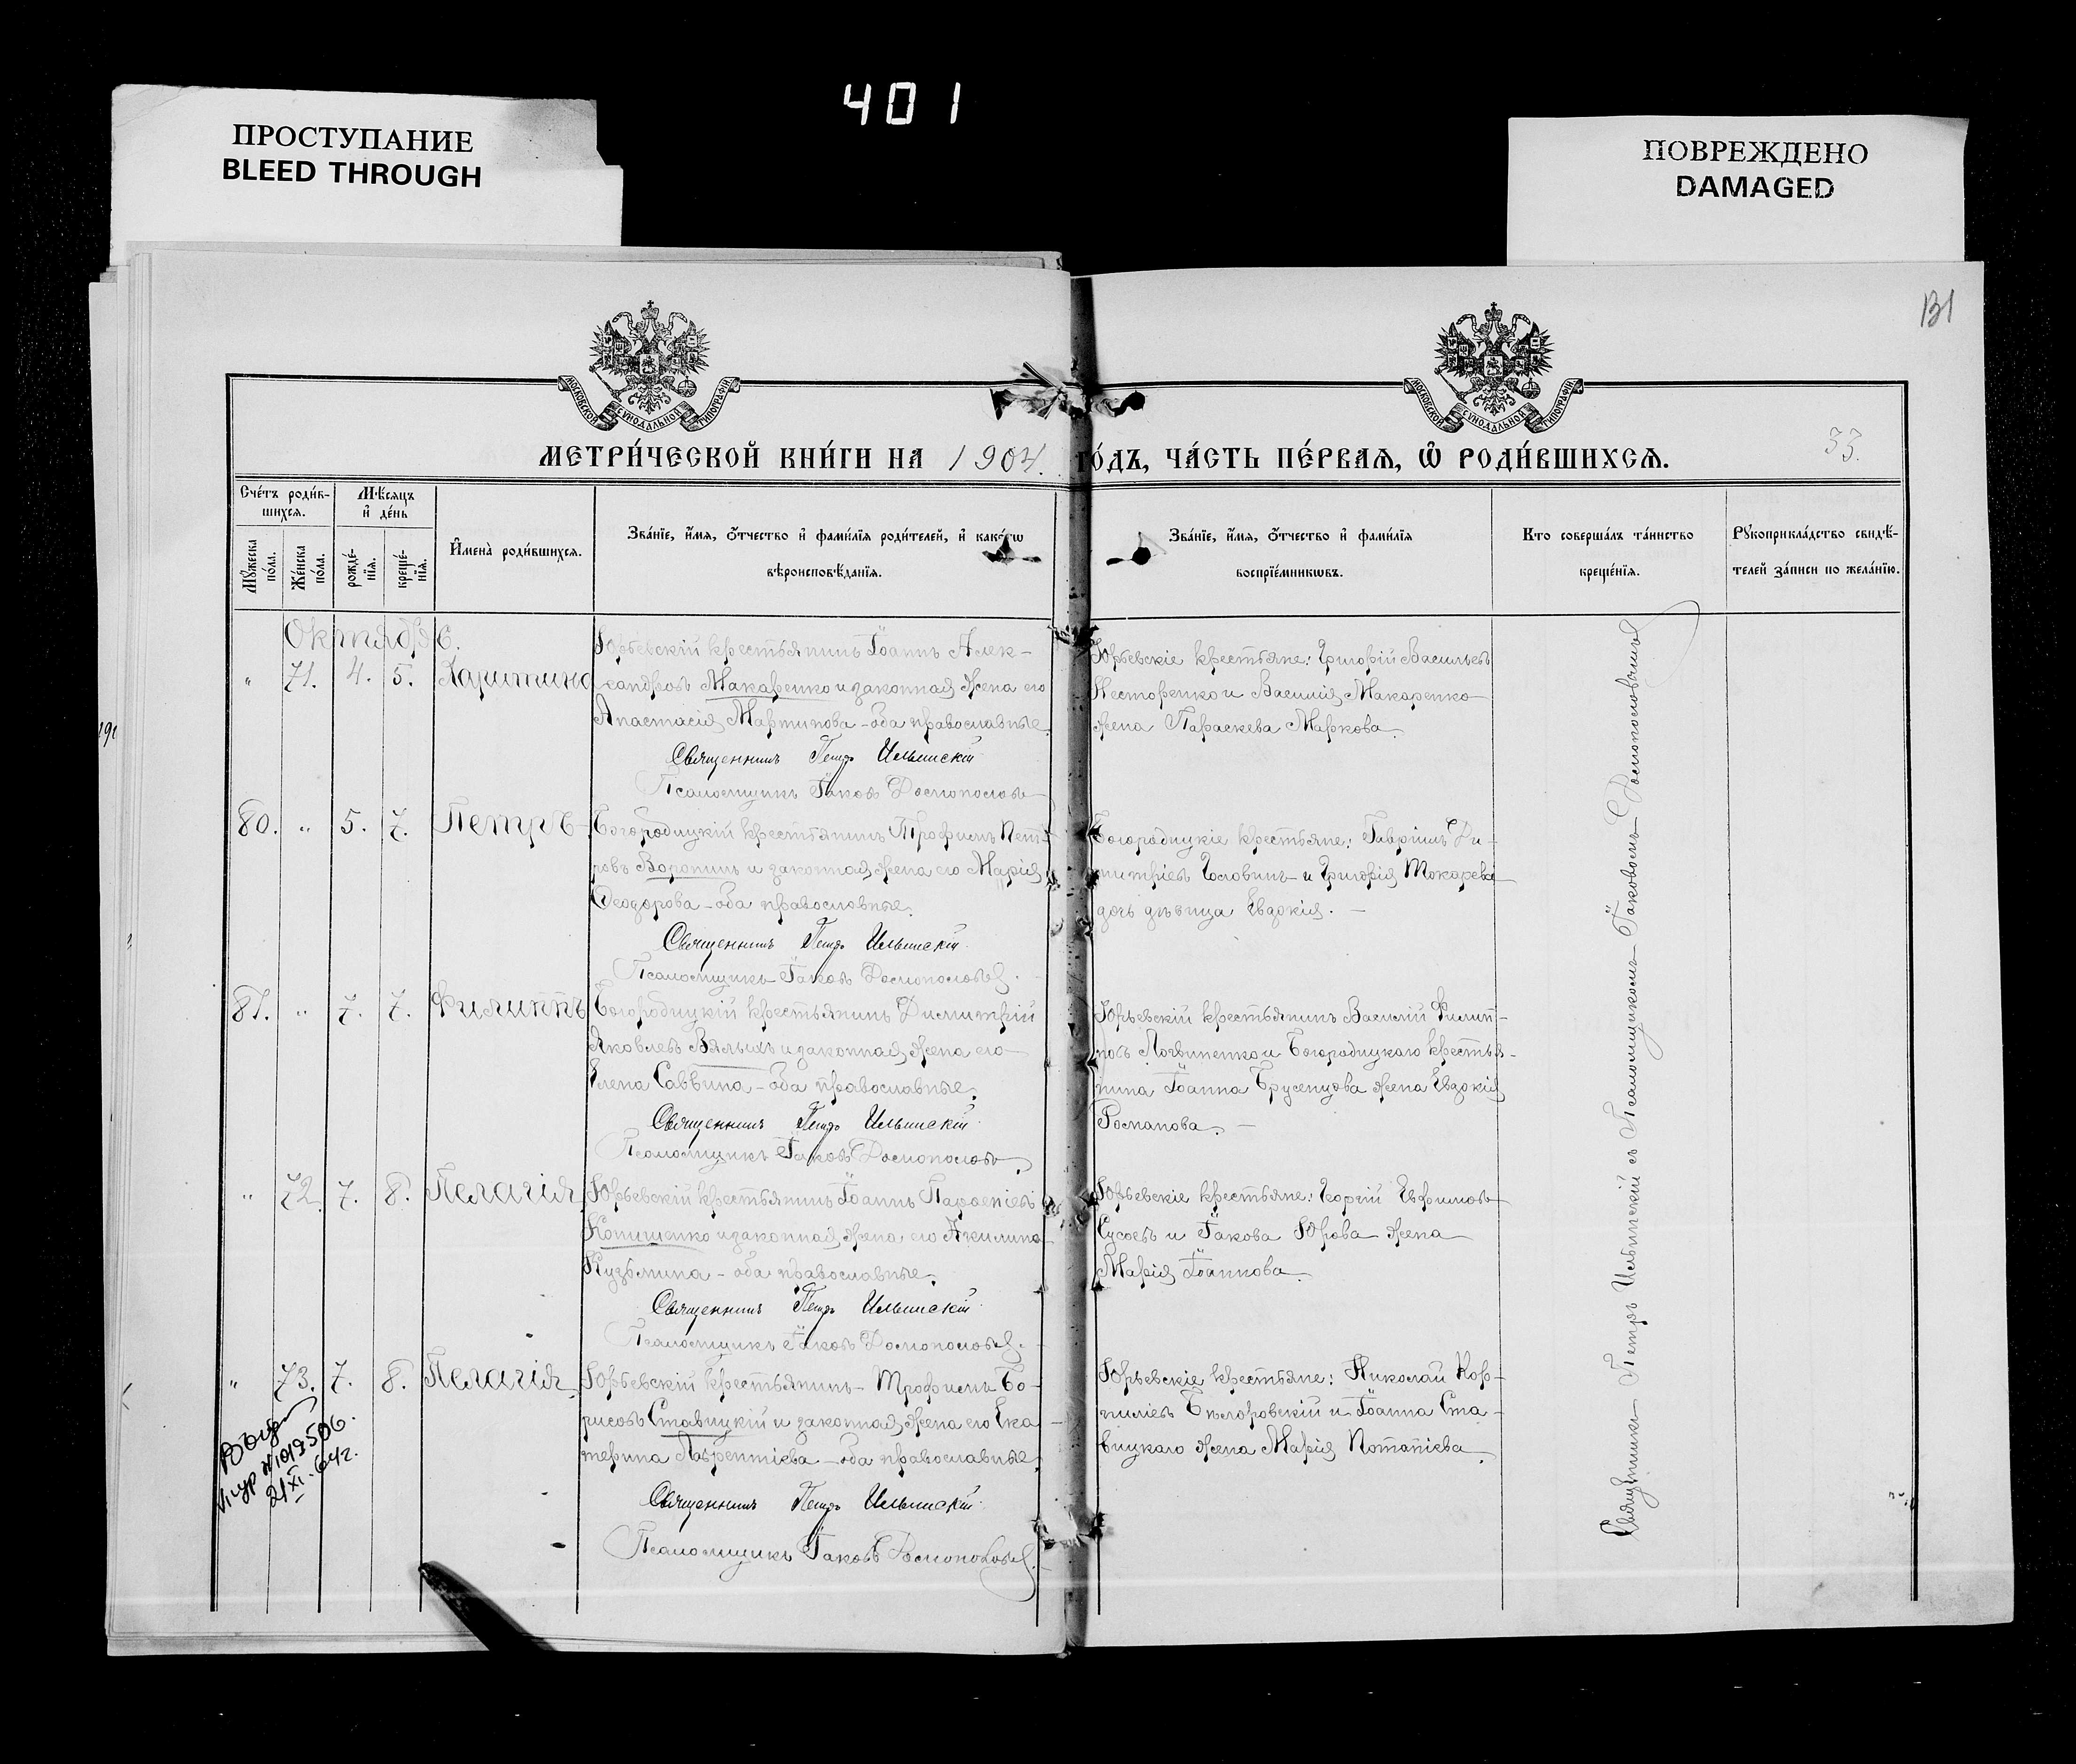 401
ПРОСТУПАНИЕ
BLEED THROUGH
ПОВРЕЖДЕНО
DAMAGED
131
МОСКОВСКОЙ СУНОДАЛЬНОЙ ТИПОГРАФІИ
МОСКОВСКОЙ СУНОДАЛЬНОЙ ТИПОГРАФІИ
МЕТРИ́ЧЕСКОЙ КНИ́ГИ НА 1904. ГО́ДЪ, ЧА́СТЬ ПЕ́РВАѦ, Ѽ РОДИ́ВШИХСѦ.
33.
Сче́тъ роди́в-
шихсѧ.
Мѣ́сѧцъ
и҆ де́нь
Мꙋ́жеска
по́ла.
Же́нска
по́ла.
рожде́-
нїѧ.
креще́-
нїѧ.
И҆мена̀ роди́вшихсѧ.
Зва́нїе, и҆́мѧ, ѻ҆́тчество и҆ фами́лїѧ роди́телей, и҆ како́гѡ
вѣроисповѣ́данїѧ.
Зва́нїе, и҆́мѧ, ѻ҆́тчество и҆ фами́лїѧ
воспрїе́мникѡвъ.
Кто соверша́лъ та́инство
креще́нїѧ.
Рꙋкоприкла́дство свидѣ́-
телей за́писи по жела́нїю.
Октября
" 71. 4. 5. Харитина
Юрьевскій крестьянинъ Іоаннъ Алек-
сандровъ Макаренко и законная жена его
Анастасія Мартинова - оба православные.
Священникъ Петръ Ильинскій
Псаломщикъ Іаковъ Распоповъ
Юрьевскіе крестьяне: Григорій Васильевъ
Несторенко и Василія Макаренко
жена Параскева Маркова.
80. " 5. 7. Петръ
Богородицкій крестьянинъ Трофимъ Пет-
ровъ Воронинъ и законная жена его Марія
Ѳеодорова - оба православные.
Священникъ Петръ Ильинскій
Псаломщикъ Іаковъ Распоповъ.
Богородицкіе крестьяне: Гавріилъ Ди-
митріевъ Головинъ и Григорія Токарева
дочь дѣвица Евдокія.
81. " 7. 7. Филиппъ
Богородицкій крестьянинъ Димитрій
Яковлевъ Вялыхъ и законная жена его
Елена Саввина - оба православные.
Священникъ Петръ Ильинскій
Псаломщикъ Іаковъ Распоповъ
Юрьевскій крестьянинъ Василій Филип-
повъ Логвиненко и Богородицкаго крестья-
нина Іоанна Брусенцова жена Евдокія
Романова.
" 72. 7. 8. Пелагія
Юрьевскій крестьянинъ Іоаннъ
и законная жена его Акилина
Кузьмина - оба православные.
Священникъ Петръ Ильинскій
Псаломщикъ Іаковъ Распоповъ.
Юрьевскіе крестьяне: Георгій Евфимовъ
Сусоевъ и Іакова Юрова жена
Марія Іоаннова.
" 73. 7. 8. Пелагія
Юрьевскій крестьянинъ Трофимъ Бо-
рисовъ Ставицкій и законная жена его Ека-
терина Лаврентіева - оба православные.
Священникъ Петръ Ильинскій
Псаломщикъ Іаковъ Распоповъ.
Юрьевскіе крестьяне: Николай Кор-
ниліевъ и Іоанна Ста-
вицкаго жена Марія Потапіева.
21 XI-64г.
Священникъ Петръ Ильинскій съ Псаломщикомъ Іаковомъ Распоповымъ